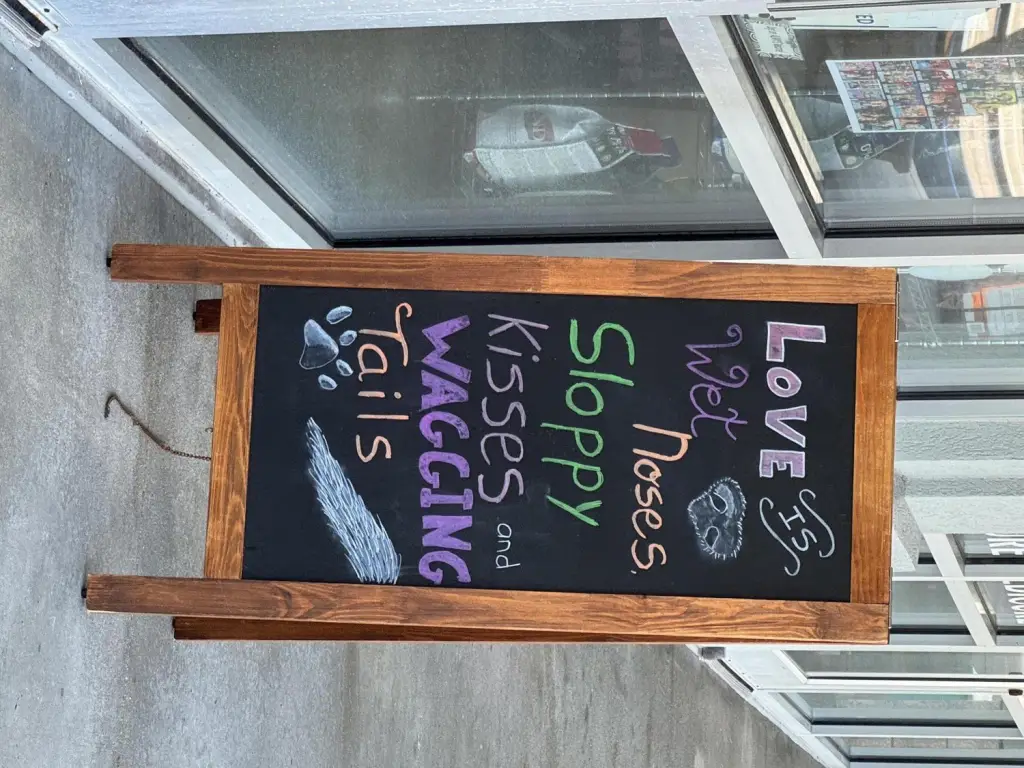 LOVE IS
Wet
Noses.
Sloppy
Kisses and
WAGGING
Tails